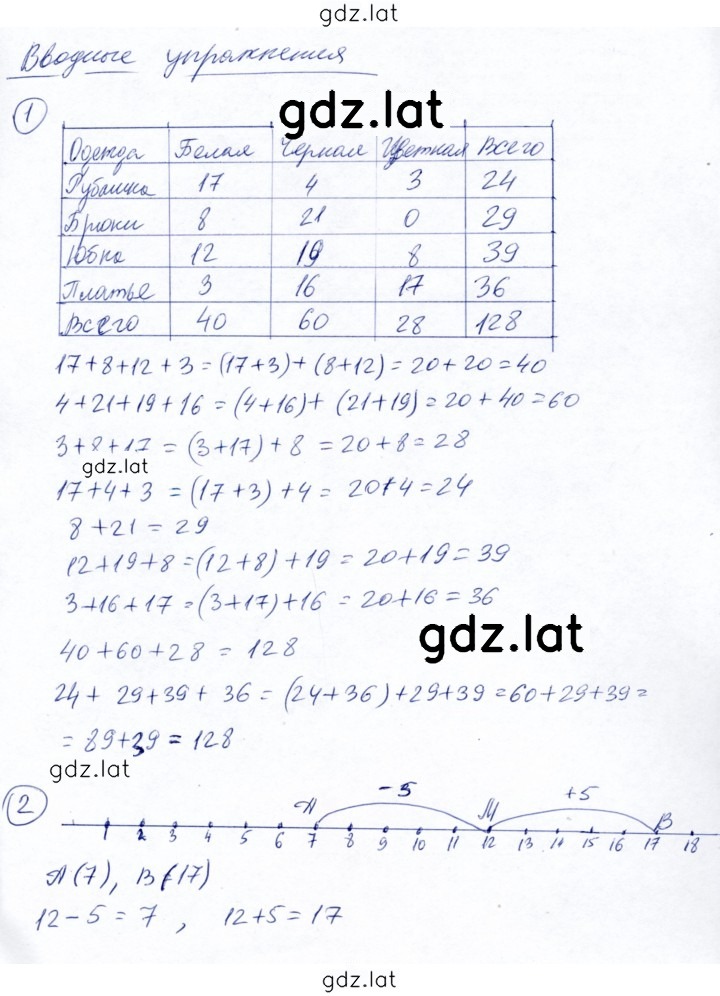 gdz.lat
Вводные упражнения
1 gdz.lat
Одежда Белая Черная Цветная Всего
Рубашка 17 4 3 24
Брюки 8 21 0 29
Юбка 12 19 8 39
Платье 3 16 17 36
Всего 40 60 28 128
17+8+12+3=(17+3)+(8+12)=20+20=40
4+21+19+16=(4+16)+(21+19)=20+40=60
3+8+17=(3+17)+8=20+8=28
gdz.lat
17+4+3=(17+3)+4=20+4=24
8+21=29
12+19+8=(12+8)+19=20+19=39
3+16+17=(3+17)+16=20+16=36
gdz.lat
40+60+28=128
24+29+39+36=(24+36)+29+39=60+29+39=
=89+39=128
gdz.lat
2 A -5 M +5 B
1 2 3 4 5 6 7 8 9 10 11 12 13 14 15 16 17 18
A(7), B(17)
12-5=7, 12+5=17
gdz.lat